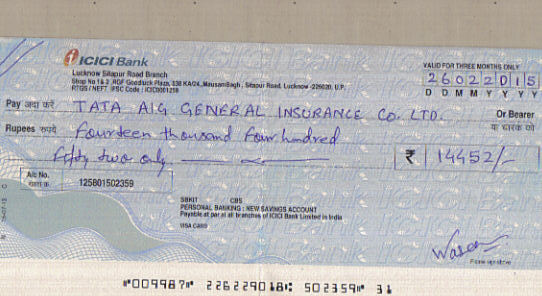 ICICI Bank
Lucknow Sitapur Road Branch
Shop No 1& 2, RGF Goodluck Plaza, 538 KA/24, MausamBagh, Sitapur Road, Lucknow -226020, U.P.
RTGS / NEFT IFSC Code : ICIC0001258
VALID FOR THREE MONTHS ONLY
26022015
D D M M Y Y Y Y
Pay अदा करें TATA AIG GENERAL INSURANCE Co. LTD. Or Bearer
या धारक को
Rupees रुपये Fourteen thousand Four hundred
Fifty two only ₹ 14452/-
A/c No. 125801502359
SBKIT CBS
PERSONAL BANKING : NEW SAVINGS ACCOUNT
Payable at par at all branches of ICICI Bank Limited in India
Please sign above
"009987" 226229018: 502359" 31